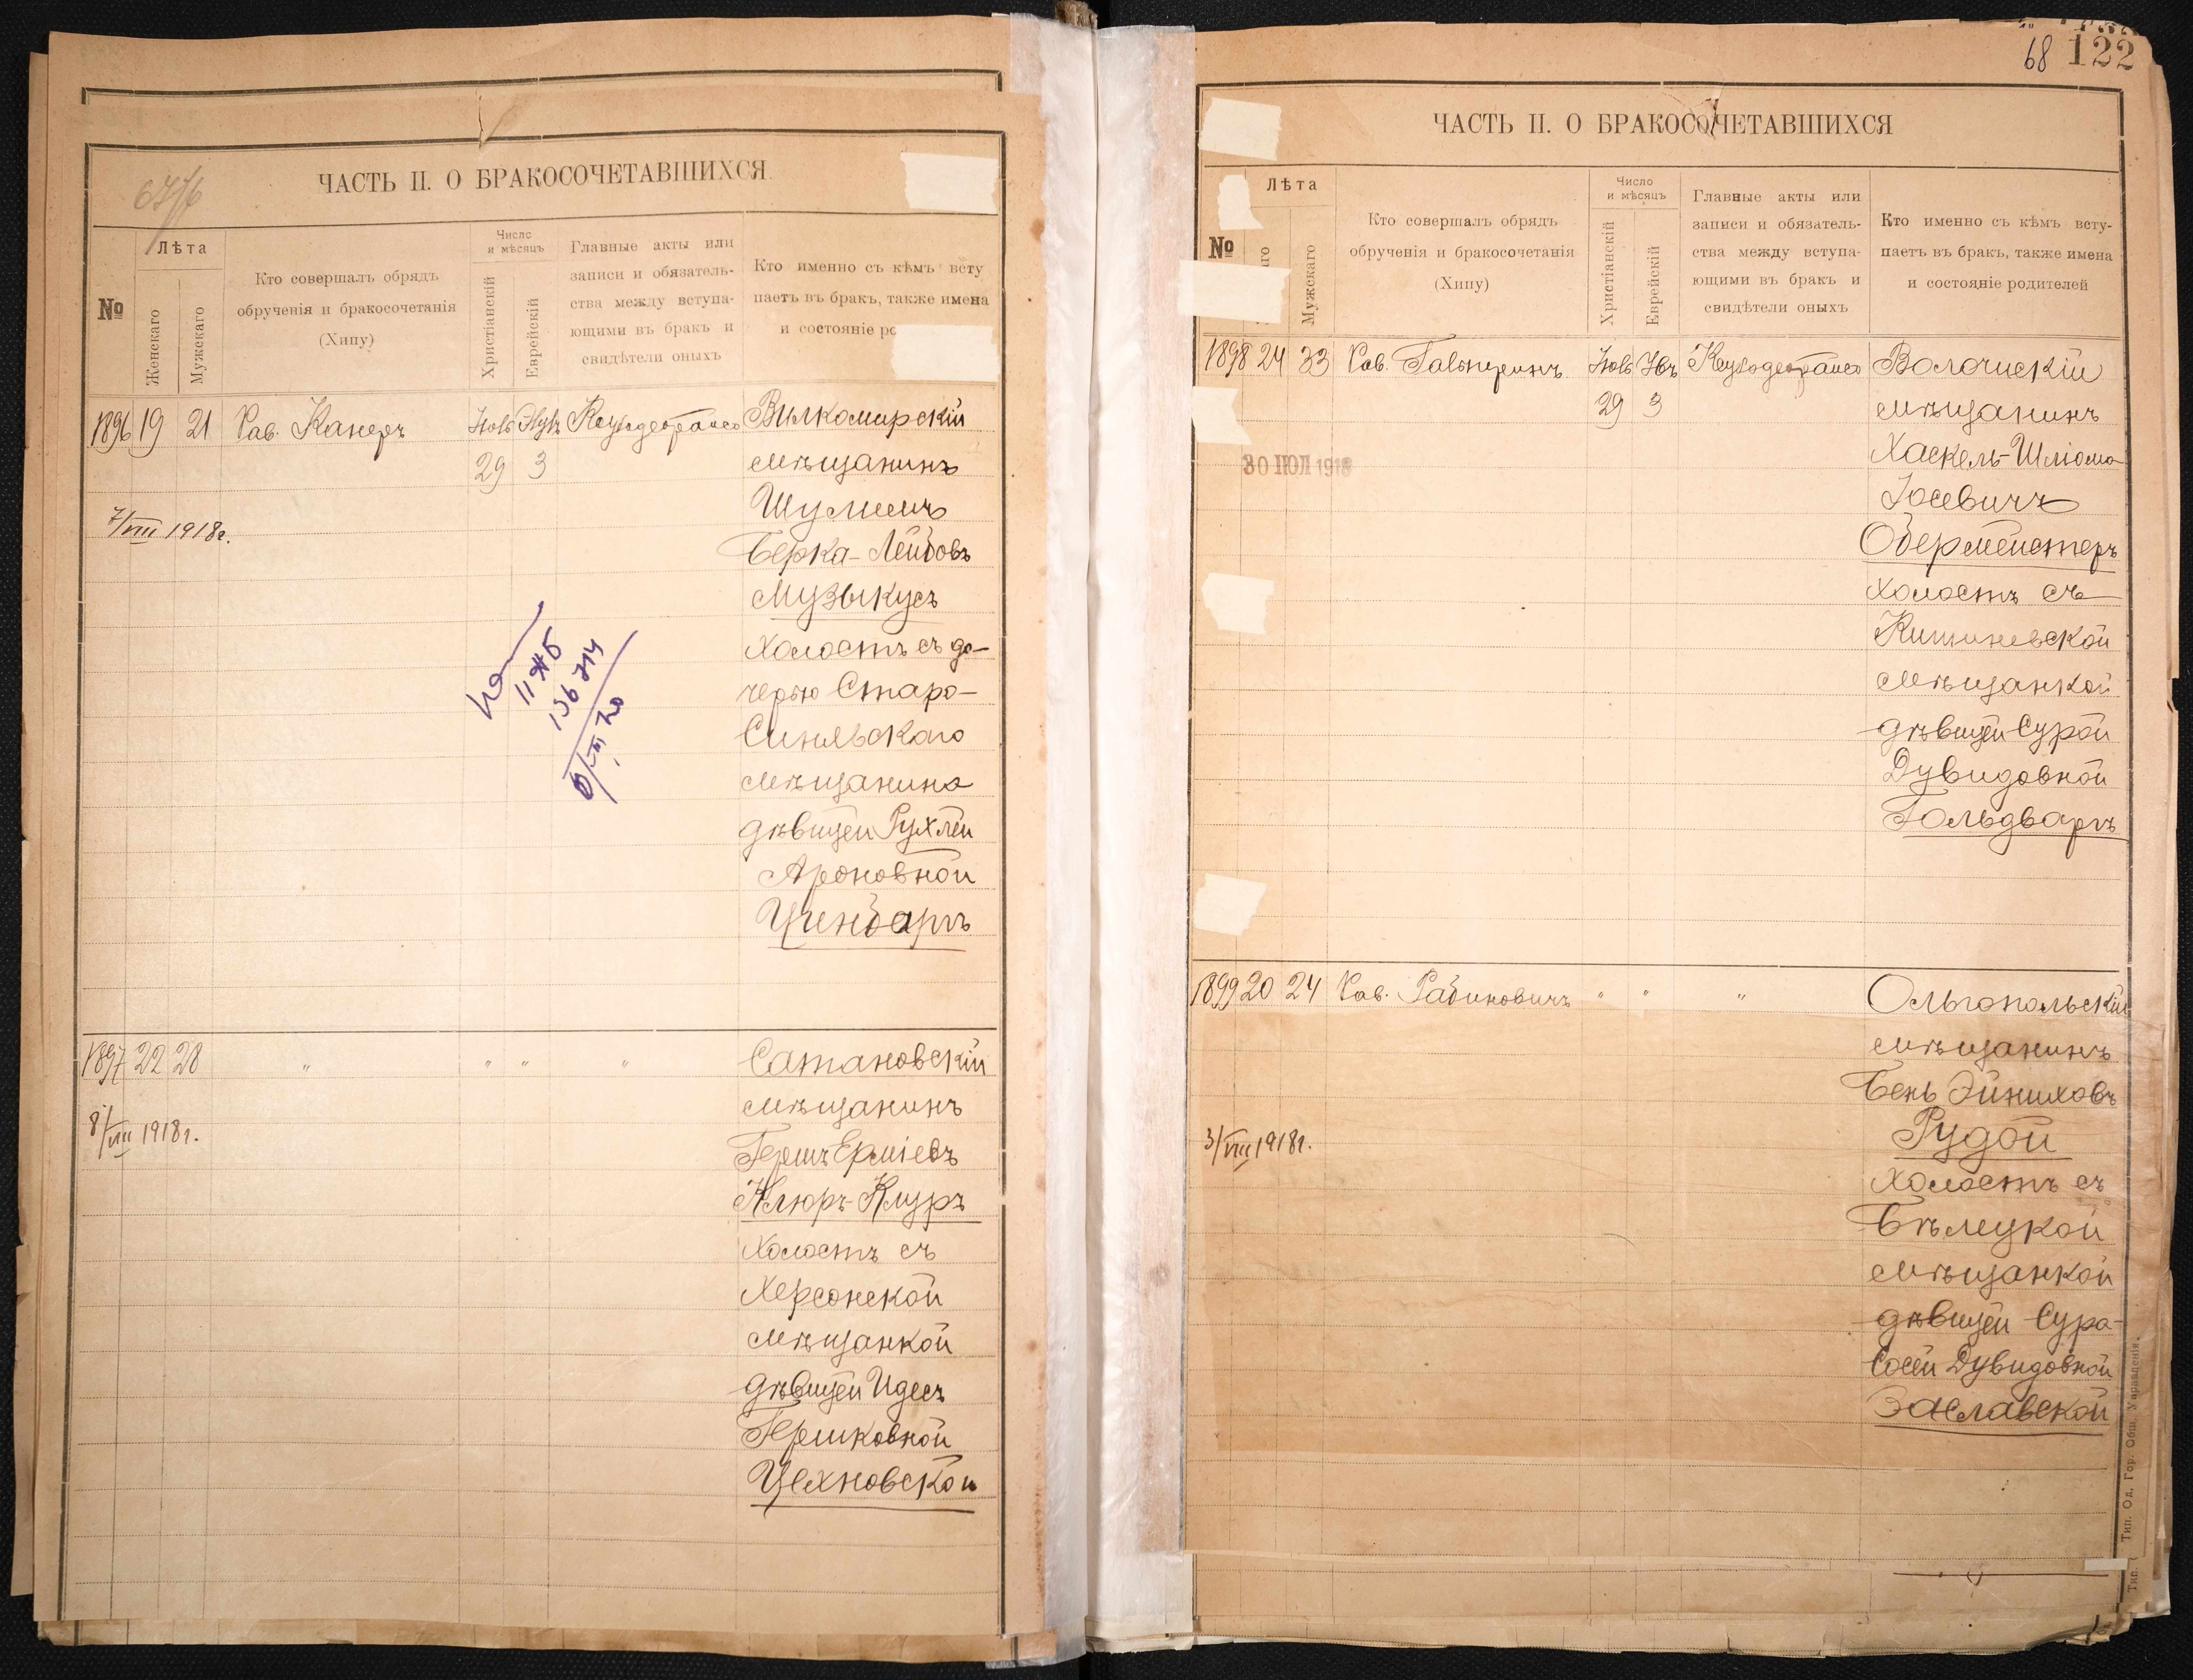 6776
ЧАСТЬ II. О БРАКОСОЧЕТАВШИХСЯ
№
Лѣта
Женскаго
Мужскаго
Кто совершалъ обрядъ
обрученія и бракосочетанія
(Хипу)
Число
и мѣсяцъ
Христіанскій
Еврейскій
Главные акты или
записи и обязатель-
ства между вступа-
ющими въ бракъ и
свидѣтели оныхъ
Кто именно съ кѣмъ всту
паетъ въ бракъ, также имена
и состояніе ро
1896 19 21 Рав. Канеръ Нояб
29 3
7/VIII 1918г.
Вилкомирскій
мѣщанинъ
Шулимъ
Берка-Лейбовъ
Музыкусъ
холостъ съ до-
черью Старо-
Синявскаго
мѣщанина
дѣвицей Рухлей
Ароновной
Цинбаргъ
1897 22 28 " " " "
8/VIII 1918г.
Сатановскій
мѣщанинъ
Гершъ Ерміевъ
Клюръ-Клуръ
холостъ съ
Херсонской
мѣщанкой
дѣвицей Идесъ
Гершковной
Цехновской
68 122
ЧАСТЬ II. О БРАКОСОЧЕТАВШИХСЯ
№
Лѣта
Мужскаго
Кто совершалъ обрядъ
обрученія и бракосочетанія
(Хипу)
Число
и мѣсяцъ
Христіанскій
Еврейскій
Главные акты или
записи и обязатель-
ства между вступа-
ющими въ бракъ и
свидѣтели оныхъ
Кто именно съ кѣмъ всту-
паетъ въ бракъ, также имена
и состояніе родителей
1898 24 33 Рав. Гальперинъ Нояб
29 3
30 ИЮЛ 1918
Волочискій
мѣщанинъ
Хаскель-Шлома
Іосевичъ
Обермейстеръ
холостъ съ
Кишиневской
мѣщанкой
дѣвицей Сурой
Дувидовной
Гольдваргъ
1899 20 24 Рав. Рабиновичъ " " "
3/VIII 1918г.
Ольгопольскій
мѣщанинъ
Бень Эйниховъ
Рудой
холостъ съ
Бѣлецкой
мѣщанкой
дѣвицей Сура-
Сосей Дувидовной
Заславской
Тип. Од. Гор. Общ. Управленія.